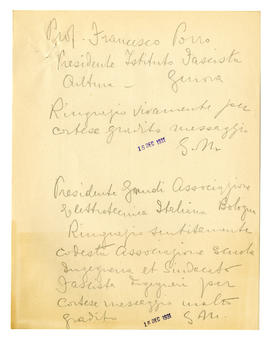 Prof. Francesco Porro
Presidente Istituto Fascista
Cultura - Genova
Ringrazio vivamente per
cortese gradito messaggio
G.M.
15 DIC 1931
Presidente Associazione
Elettrotecnica Italiana Bologna
Ringrazio sentitamente
codesta Associazione Scuola
Ingegneria et Sindacato
Fascista Ingegneri per
cortese messaggio molto
gradito GM.
15 DIC 1931